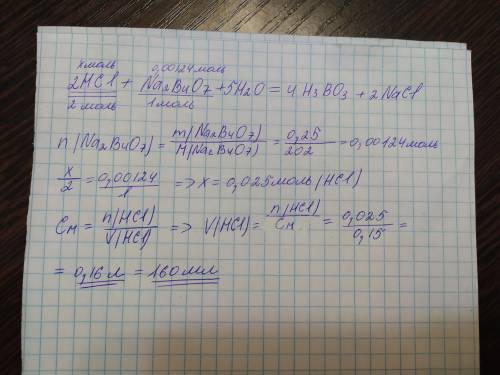 x моль 0,00124 моль
2HCl + Na₂B₄O₇ + 5H₂O = 4H₃BO₃ + 2NaCl
2 моль 1 моль
n(Na₂B₄O₇) = m(Na₂B₄O₇)/M(Na₂B₄O₇) = 0,25/202 = 0,00124 моль
x/2 = 0,00124/1 => x = 0,025 моль (HCl)
Cм = n(HCl)/V(HCl) => V(HCl) = n(HCl)/Cм = 0,025/0,15 =
= 0,16 л = 160 мл